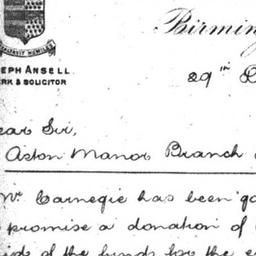 Birmin
EPH ANSELL
RK & SOLICITOR
29th
ear Sir,
Aston Manor Branch
Mr. Carnegie has been
promise a donation of
id of the funds for the